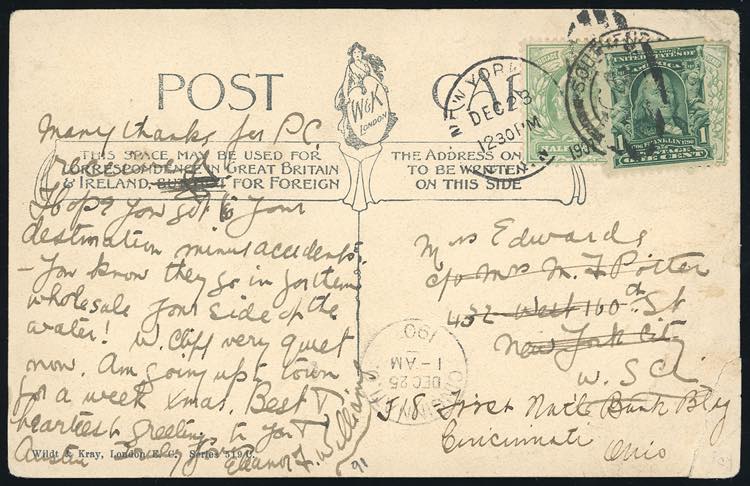 POST CA
W&K
LONDON
THIS SPACE MAY BE USED FOR
CORRESPONDENCE IN GREAT BRITAIN
& IRELAND, FOR FOREIGN
THE ADDRESS ON
TO BE WRITTEN
ON THIS SIDE
Many thanks for P.C.
I hope you got to your
destination minus accidents.
– You know they go in for them
wholesale your side of the
water! W. Cliff very quiet
now. Am going up to town
for a week Xmas. Best &
heartiest greetings to you &
Austin
Eleanor F. Williams
91
NEW YORK
DEC 23
12 30 PM
SOUTHEND
HALF
UNITED STATES
OF AMERICA
FRANKLIN
1 1
POSTAGE
ONE CENT
Mrs Edwards
c/o Mrs M. F Potter
432 West 160th St
New York City
U.S.A.
First Nat'l Bank Bldg
Cincinnati
Ohio
DEC 25
1-AM
190
Wildt & Kray, London E. C. Series